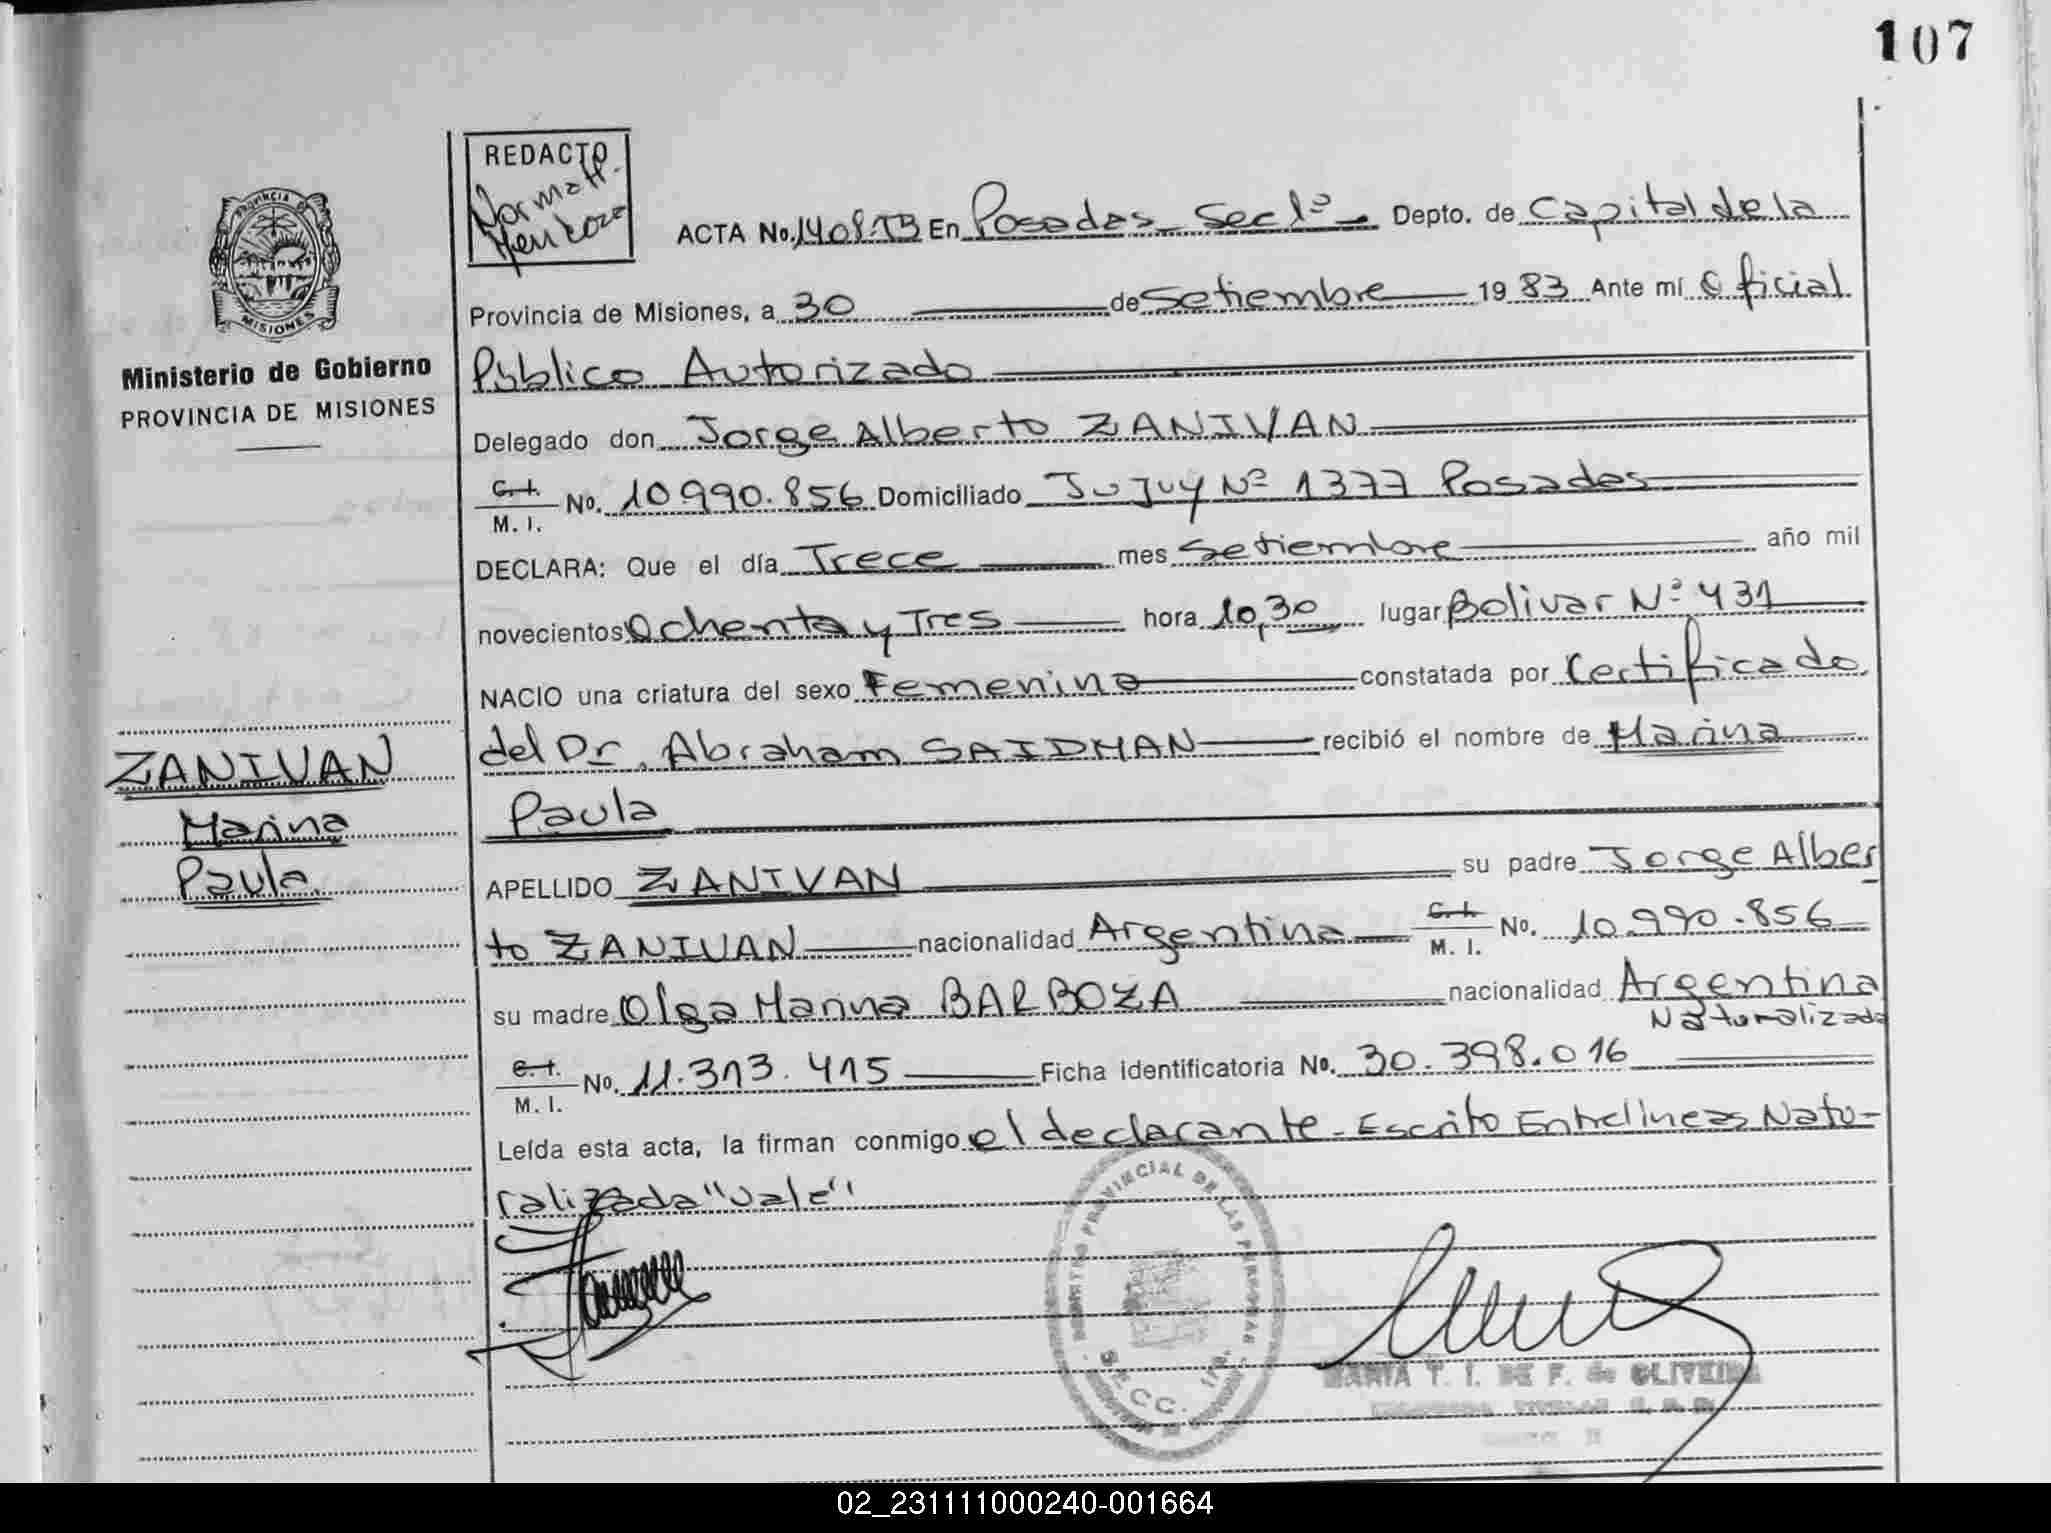 107
REDACTO
Norma H.
PROVINCIA DE
MISIONES
Ministerio de Gobierno
PROVINCIA DE MISIONES
ACTA No. En Posadas Secc 1ª Depto. de Capital de la
Provincia de Misiones, a 30 de Setiembre 1983 Ante mí Oficial
Público Autorizado
Delegado don Jorge Alberto ZANIVAN
C. I.
M. I. No. 10.990.856 Domiciliado Jujuy Nº 1377 Posadas
DECLARA: Que el día Trece mes Setiembre año mil
novecientos Ochenta y Tres hora 10,30 lugar Bolivar Nº 431
NACIO una criatura del sexo Femenino constatada por Certificado
del Dr. Abraham SAIDMAN recibió el nombre de Marina
Paula
ZANIVAN
Marina
Paula
APELLIDO ZANIVAN su padre Jorge Alber
to ZANIVAN nacionalidad Argentina C. I.
M. I. No. 10.990.856
su madre Olga Marina BARBOZA nacionalidad Argentina
Naturalizada
C. I.
M. I. No. 11.313.415 Ficha identificatoria No. 30.398.016
Leída esta acta, la firman conmigo el declarante - Escrito Entrelineas Natu-
ralizada "vale"
REGISTRO PROVINCIAL DE LAS PERSONAS
SECC. 1ra.
MARIA T. I. DE F. de OLIVEIRA
02_231111000240-001664